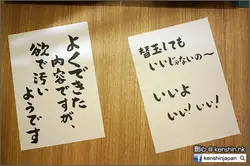 よくできた
内容ですが、
欲で汚い
ようです
替玉しても
いいじゃないの〜
いいよ
いい!いい!
點心@kenshin.hk
kenshinjapan